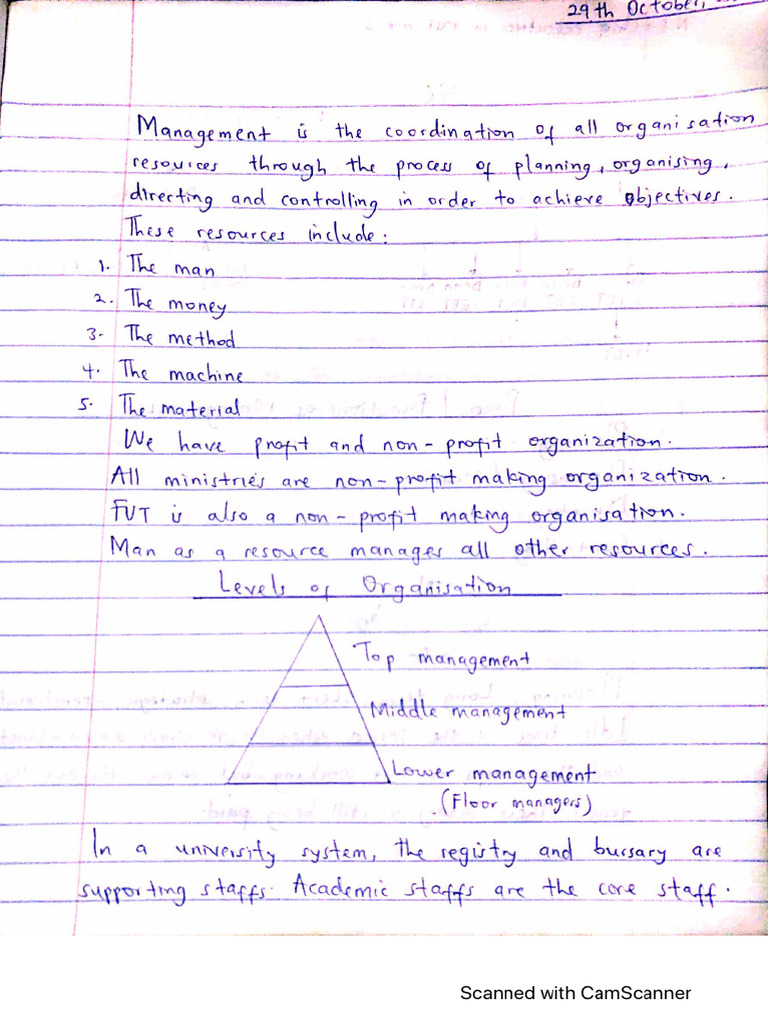 29th October,
Management is the coordination of all organisation
resources through the process of planning, organising,
directing and controlling in order to achieve objectives.
These resources include:
1. The man
2. The money
3. The method
4. The machine
5. The material
We have profit and non-profit organization.
All ministries are non-profit making organization.
FUT is also a non-profit making organisation.
Man as a resource manages all other resources.
Levels of Organisation
Top management
Middle management
Lower management
(Floor managers)
In a university system, the registry and bursary are
supporting staffs. Academic staffs are the core staff.
Scanned with CamScanner